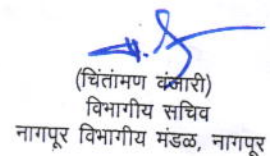 (चिंतामण वंजारी)
विभागीय सचिव
नागपूर विभागीय मंडळ, नागपूर